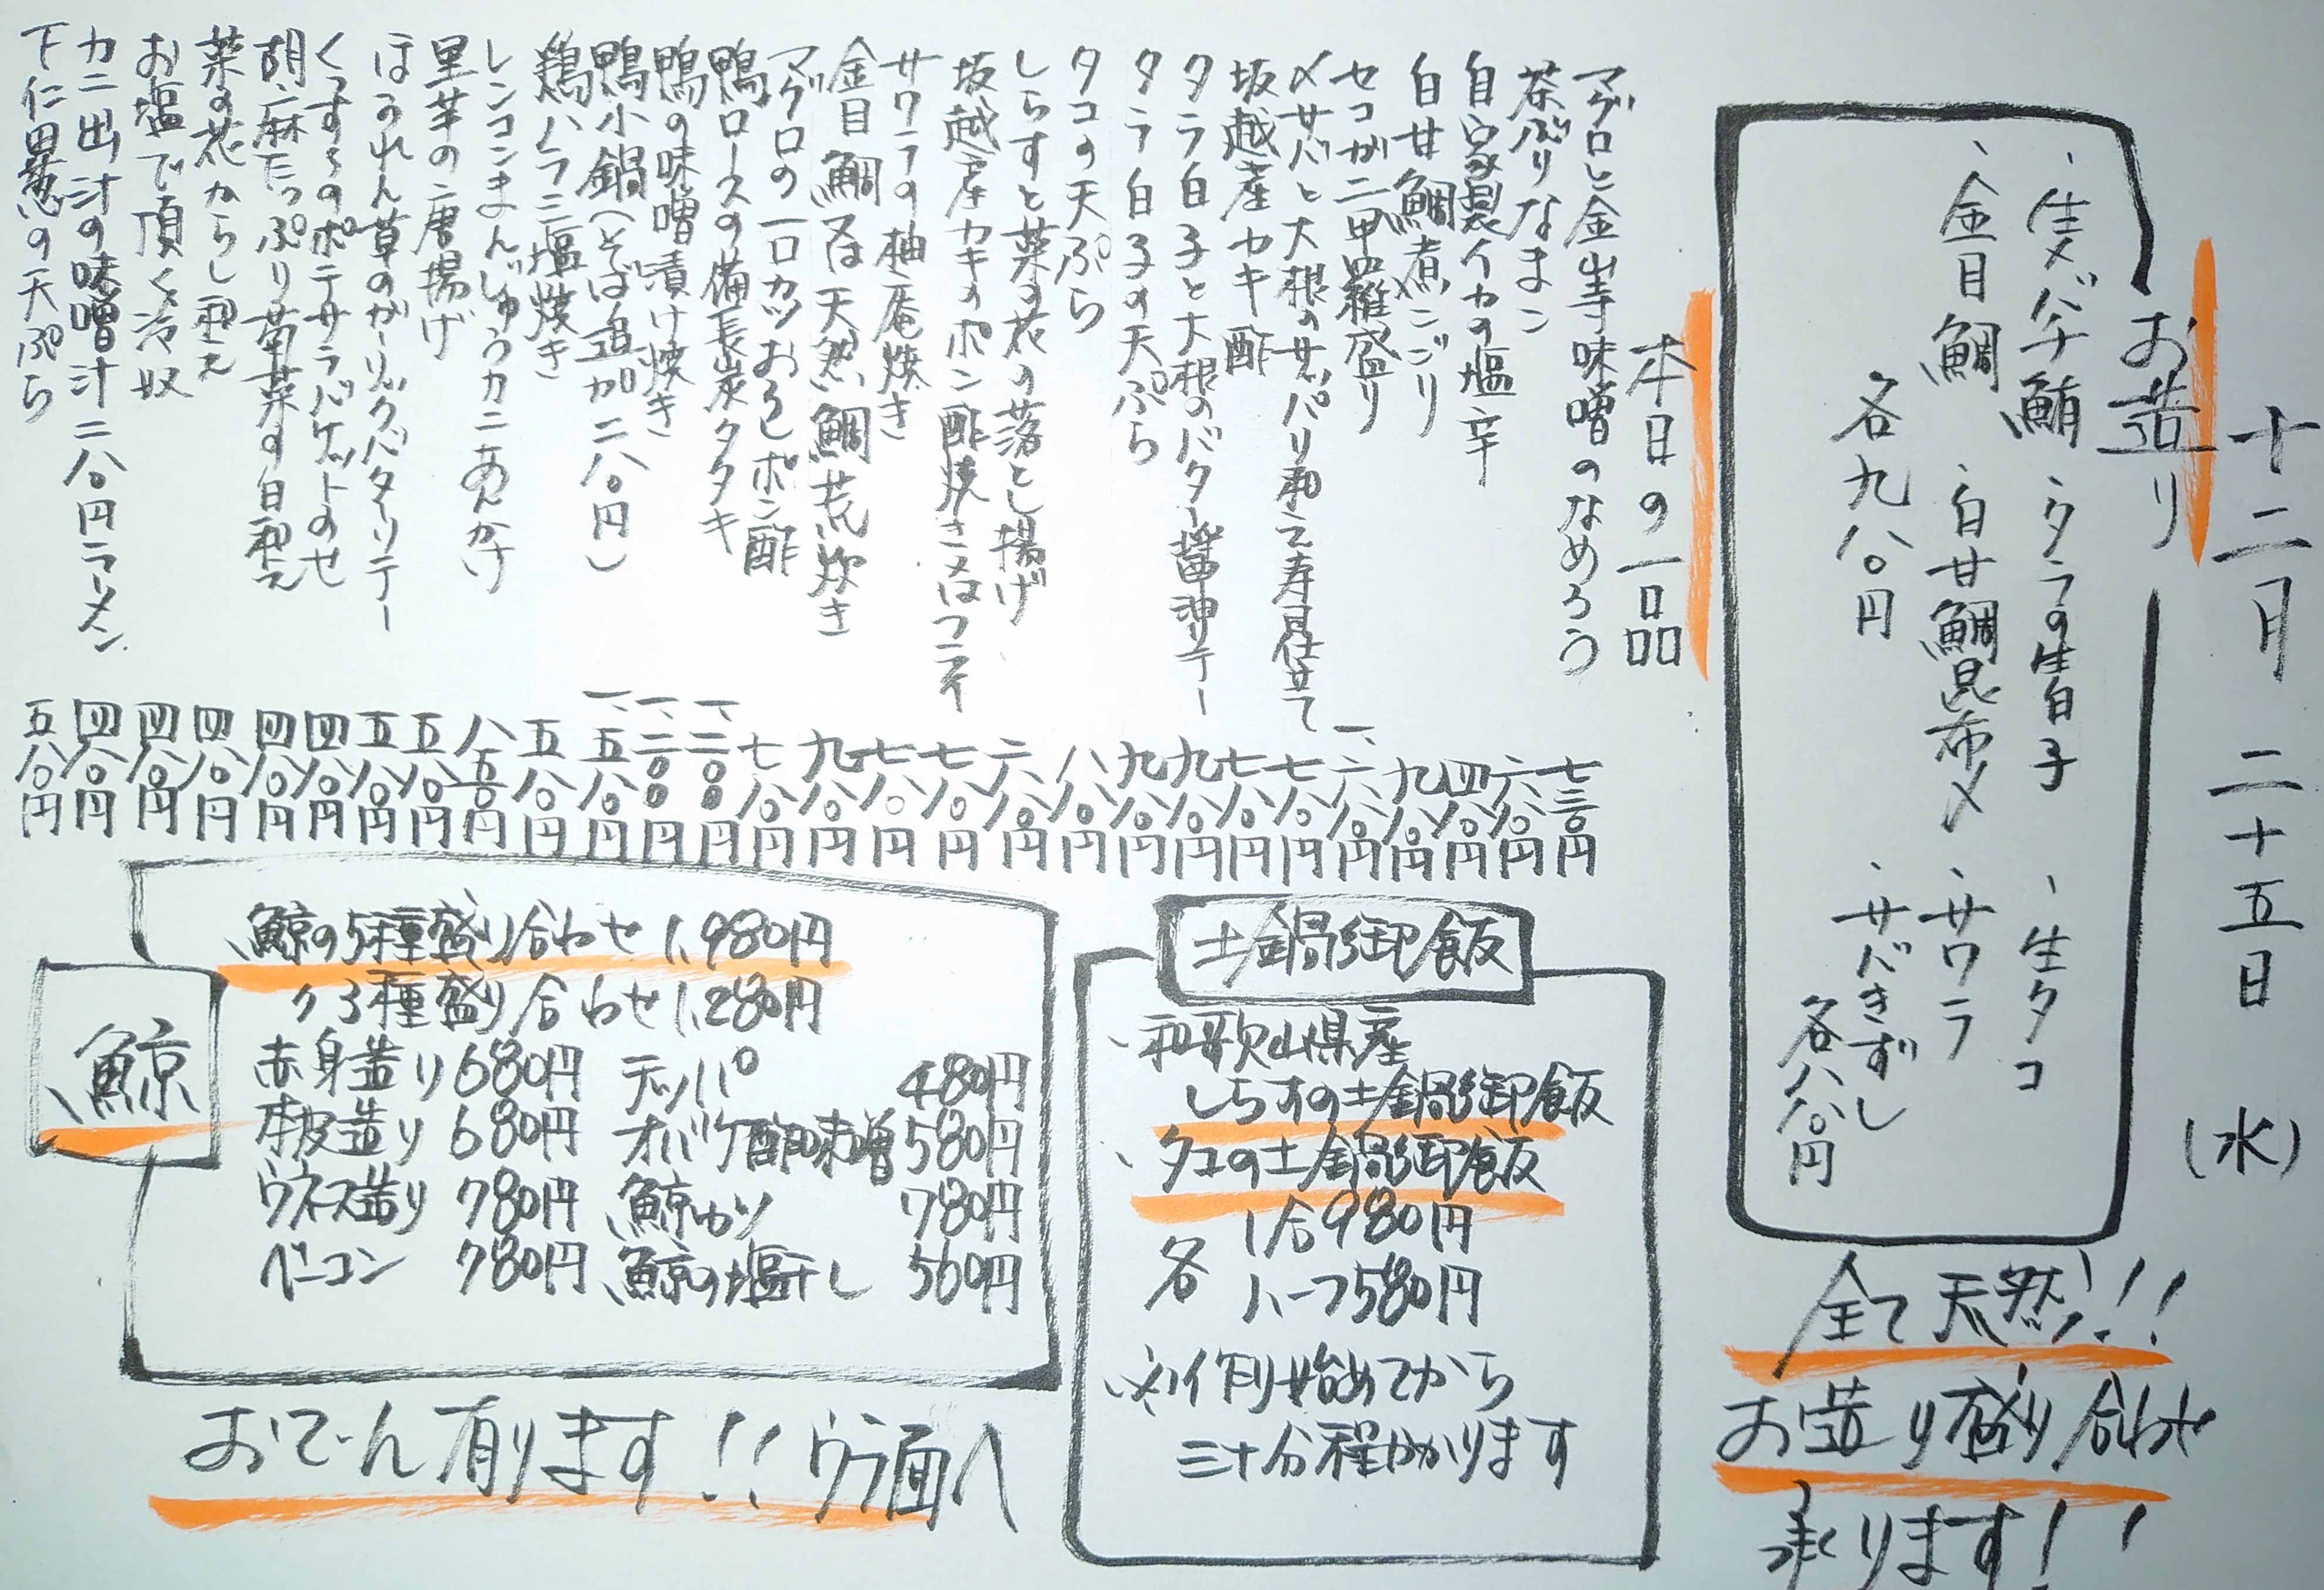 十二月 二十五日 (水)
お造り
・生メバチ鮪 ・タラの生白子 ・生タコ
・金目鯛 ・白甘鯛昆布〆 ・サワラ
・サバきずし
各九八〇円
各八八〇円
全て天然!!
お造り盛り合わせ
承ります!!
本日の一品
マグロと金山寺味噌のなめろう 七三〇円
茶ぶりなまこ 六八〇円
自家製イカの塩辛 四八〇円
白甘鯛煮こごり 九八〇円
セコガニ甲羅盛り 一、六八〇円
〆サバと大根のサッパリ和え寿司仕立て 七八〇円
坂越産カキ酢 七八〇円
タラ白子と大根のバター醤油ソテー 九八〇円
タラ白子の天ぷら 九八〇円
タコの天ぷら 八八〇円
しらすと菜の花の落とし揚げ 六八〇円
坂越産カキのポン酢焼き又はフライ 七八〇円
サワラの柚庵焼き 七八〇円
金目鯛又は天然鯛荒炊き 九八〇円
マグロの一口カツおろしポン酢 七八〇円
鴨ロースの備長炭タタキ 一、二〇〇円
鴨の味噌漬け焼き 一、二〇〇円
鴨小鍋(そば追加二八〇円) 一、五八〇円
鶏ハラミ塩焼き 五八〇円
レンコンまんじゅうカニあんかけ 八五〇円
里芋の唐揚げ 五八〇円
ほうれん草のガーリックバターソテー 五八〇円
くずし〜のポテサラバゲットのせ 四八〇円
胡麻たっぷり菊菜の白和え 四八〇円
菜の花からし和え 四八〇円
お塩で頂く冷奴 四八〇円
カニ出汁の味噌汁 二八〇円 ラーメン 四八〇円
下仁田葱の天ぷら 五八〇円
土鍋御飯
・和歌山県産
しらすの土鍋御飯
・タコの土鍋御飯
各 1合980円
ハーフ580円
※作り始めてから
三十分程かかります
鯨
鯨の5種盛り合わせ 1,980円
〃 3種盛り合わせ 1,280円
赤身造り 680円 テッパ 480円
本皮造り 680円 オバケ酢味噌 580円
ウネス造り 780円 鯨カツ 780円
ベーコン 780円 鯨の塩干し 560円
おでん有ります!! ウラ面へ